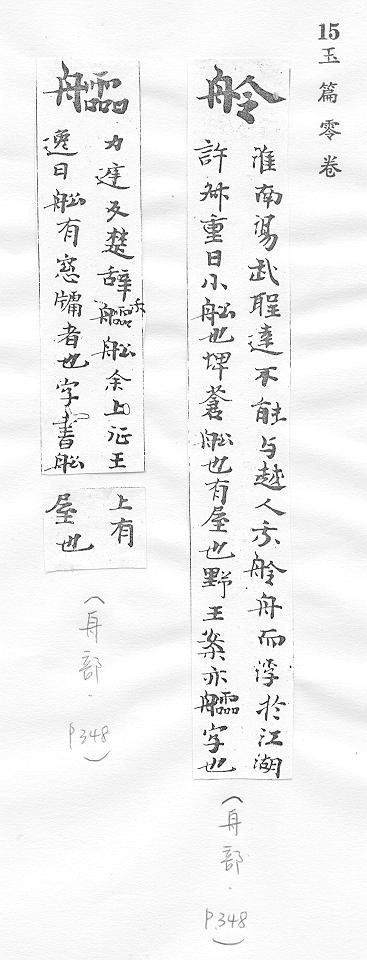 15 玉篇零卷
舲
淮南湯武聖達不能与越人乘舲舟而浮於江湖
許叔重曰小舩也埤蒼舩也有屋也野王案亦䑼字也
(舟部.P.348)
䑼
力廷反楚辭乘䑼舩余上沅王
逸曰舩有窓牖者也字書舩
上有
屋也
(舟部.P.348)